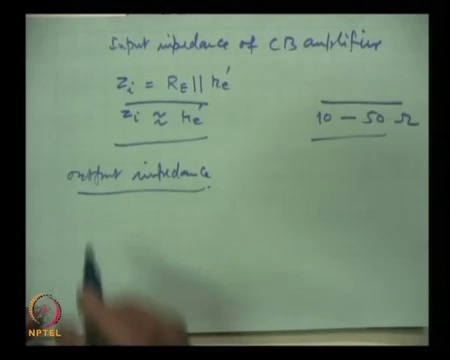 Input impedance of CB amplifier
Zi = RE || re'
Zi ≈ re'
10 – 50 Ω
output impedance
NPTEL